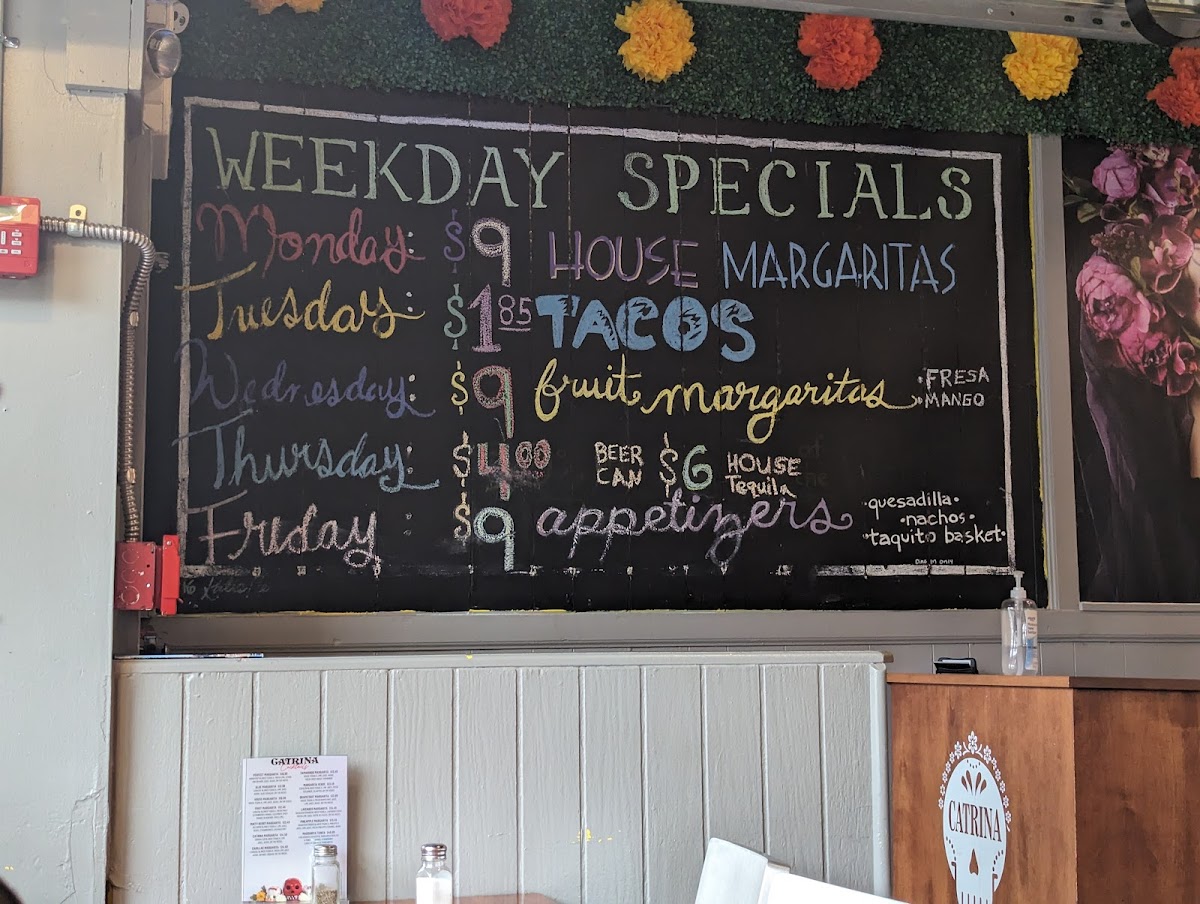 WEEKDAY SPECIALS
Monday: $9 HOUSE MARGARITAS
Tuesday: $1.85 TACOS
Wednesday: $9 fruit margaritas • FRESA • MANGO
Thursday: $4.00 BEER CAN $6 HOUSE Tequila
Friday: $9 appetizers • quesadilla • • nachos • • taquito basket •
CATRINA
CATRINA